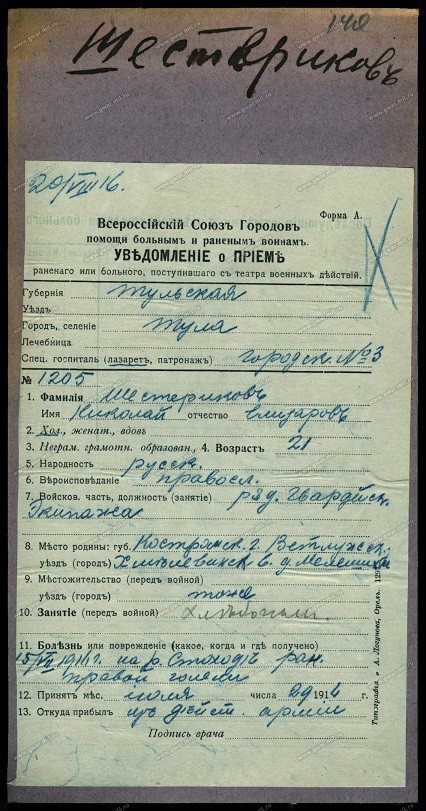 149
Шестериковъ
20/VIII 16.
Форма А.
Всероссійскій Союзъ Городовъ
помощи больнымъ и раненымъ воинамъ.
УВѢДОМЛЕНІЕ о ПРІЕМѢ
раненаго или больного, поступившаго съ театра военныхъ дѣйствій.
Губернія Тульская
Уѣздъ
Городъ, селеніе Тула
Лечебница
Спец. госпиталь (лазаретъ, патронажъ) городск. №3
№ 1205
1. Фамилія Шестериковъ
Имя Николай отчество Елизаровъ
2. Хол., женат., вдовъ
3. Неграм. грамотн. образован., 4. Возрастъ 21
5. Народность русск.
6. Вѣроисповѣданіе правосл.
7. Войсков. часть, должность (занятіе) ряд. Гвардейск.
Экипажа
8. Мѣсто родины: губ. Костромск. г. Ветлужск.
уѣздъ (городъ) в. д.
9. Мѣстожительство (передъ войной)
уѣздъ (городъ) тоже
10. Занятіе (передъ войной) Хлѣбопаш.
11. Болѣзнь или поврежденіе (какое, когда и гдѣ получено)
15/VII 1916 г. на р. Стоходѣ ран.
правой голени
12. Принятъ мѣс. іюля числа 29 1916 г.
13. Откуда прибылъ изъ дѣйст. арміи
Подпись врача
Типографія А. Логунова, Орелъ.
www.gwar.mil.ru